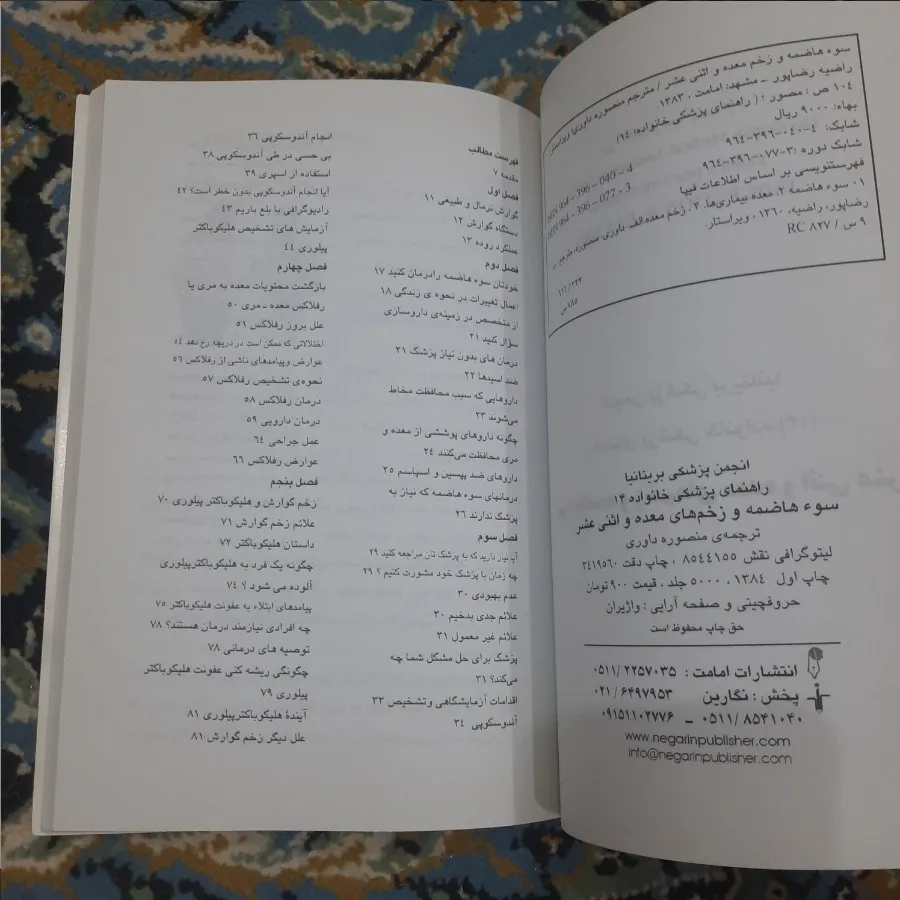 سوء هاضمه و زخم معده و اثنی عشر / مترجم منصوره داوری؛ ویراستار:
راضیه رضاپور. ـ مشهد: امامت، ۱۳۸۳.
۱۰۴ ص : مصور ؛ ( راهنمای پزشکی خانواده: ۱۴)
بهاء: ۹۰۰۰ ریال
شابک: ۴-۰۴۰-۳۹۶-۹۶۴
شابک دوره :۳-۰۷۷-۳۹۶-۹۶۴
ISBN 964 - 396 - 040 - 4
ISBN 964 - 396 - 077 - 3
فهرستنویسی بر اساس اطلاعات فیپا
۱. سوء هاضمه ۲. معده بیماری‌ها. ۳. زخم معده.الف. داوری، منصوره، مترجم. ب
رضاپور، راضیه، ۱۳۶۰، ویراستار.
۹ س / ۸۲۷ RC
۶۱۶/۳۳۲
انجمن پزشکی بریتانیا
راهنمای پزشکی خانواده ۱۴
سوء هاضمه و زخم‌های معده و اثنی عشر
ترجمه‌ی منصوره داوری
لیتوگرافی نقش ۸۵۴۴۱۵۵ ، چاپ دقت ۳۴۱۹۵۶۰
چاپ اول ۱۳۸۴، ۵۰۰۰ جلد ، قیمت ۹۰۰ تومان
حروفچینی و صفحه آرایی : واژیران
حق چاپ محفوظ است
انتشارات امامت : ۲۲۵۷۰۳۵ /۰۵۱۱
پخش : نگارین ۶۴۹۷۹۵۳ /۰۲۱
۰۹۱۵۱۱۰۲۷۷۶ ـ ۰۵۱۱/ ۸۵۴۱۰۴۰
www.negarinpublisher.com
info@negarinpublisher.com
فهرست مطالب
مقدمه ۷
فصل اول
گوارش نرمال و طبیعی ۱۱
دستگاه گوارش ۱۲
عملکرد روده ۱۳
فصل دوم
خودتان سوء هاضمه رادرمان کنید ۱۷
اعمال تغییرات در نحوه ی زندگی ۱۸
از متخصص در زمینه‌ی داروسازی
سؤال کنید ۲۱
درمان های بدون نیاز پزشک ۲۱
ضد اسیدها ۲۲
داروهایی که سبب محافظت مخاط
می‌شوند ۲۳
چگونه داروهای پوششی از معده و
مری محافظت می‌کنند ۲۴
داروهای ضد پپسین و اسپاسم ۲۵
درمانهای سوء هاضمه که نیاز به
پزشک ندارند ۲۶
فصل سوم
آیا نیاز دارید که به پزشک تان مراجعه کنید ۲۹
چه زمان با پزشک خود مشورت کنیم ؟ ۲۹
عدم بهبودی ۳۰
علائم جدی بدخیم ۳۰
علائم غیر معمول ۳۱
پزشک برای حل مشکل شما چه
می‌کند؟ ۳۱
اقدامات آزمایشگاهی وتشخیص ۳۳
آندوسکوپی ۳۴
انجام آندوسکوپی ۳۶
بی حسی در طی آندوسکوپی ۳۸
استفاده از اسپری ۳۹
آیا انجام آندوسکوپی بدون خطر است؟ ۴۲
رادیوگرافی با بلع باریم ۴۳
آزمایش های تشخیص هلیکوباکتر
پیلوری ۴۴
فصل چهارم
بازگشت محتویات معده به مری یا
رفلاکس معده ـ مری ۵۰
علل بروز رفلاکس ۵۱
اختلالاتی که ممکن است در دریچه رخ دهد ۵۴
عوارض وپیامدهای ناشی از رفلاکس ۵۶
نحوه‌ی تشخیص رفلاکس ۵۷
درمان رفلاکس ۵۸
درمان دارویی ۵۹
عمل جراحی ۶۴
عوارض رفلاکس ۶۶
فصل پنجم
زخم گوارش و هلیکوباکتر پیلوری ۷۰
علائم زخم گوارش ۷۱
داستان هلیکوباکتر ۷۲
چگونه یک فرد به هلیکوباکترپیلوری
آلوده می شود ؟ ۷۴
پیامدهای ابتلاء به عفونت هلیکوباکتر ۷۵
چه افرادی نیازمند درمان هستند؟ ۷۸
توصیه های درمانی ۷۸
چگونگی ریشه کنی عفونت هلیکوباکتر
پیلوری ۷۹
آیندهٔ هلیکوباکترپیلوری ۸۱
علل دیگر زخم گوارش ۸۱